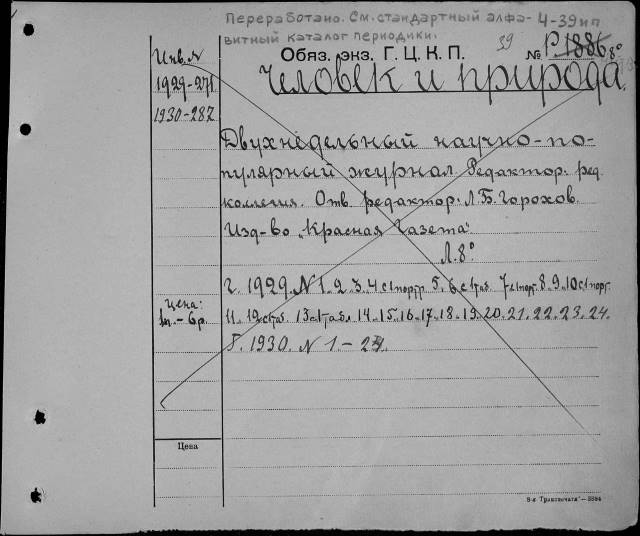 Переработано. См. стандартный алфа-
витный каталог периодики.
4-39 ип
Обяз. экз. Г. Ц. К. П.
39
№ Р.1886 8°
Инв. №
1929-271
1930-287
Человек и природа.
Двухнедельный научно-по-
пулярный журнал. Редактор: ред.
коллегия. Отв. редактор: Л.Б. Горохов.
Изд-во „Красная Газета"
Л. 8°
Г. 1929. N 1. 2. 3. 4 с 1 портр. 5. 6 с 1 таб. 7 с 1 порт. 8. 9. 10 с 1 порт.
11. 12 с 1 таб. 13 с 1 табл. 14. 15. 16. 17. 18. 19. 20. 21. 22. 23. 24.
Г. 1930. N 1-24.
Цена:
- 6 р.
Цена
8-я Транспечати — 3884